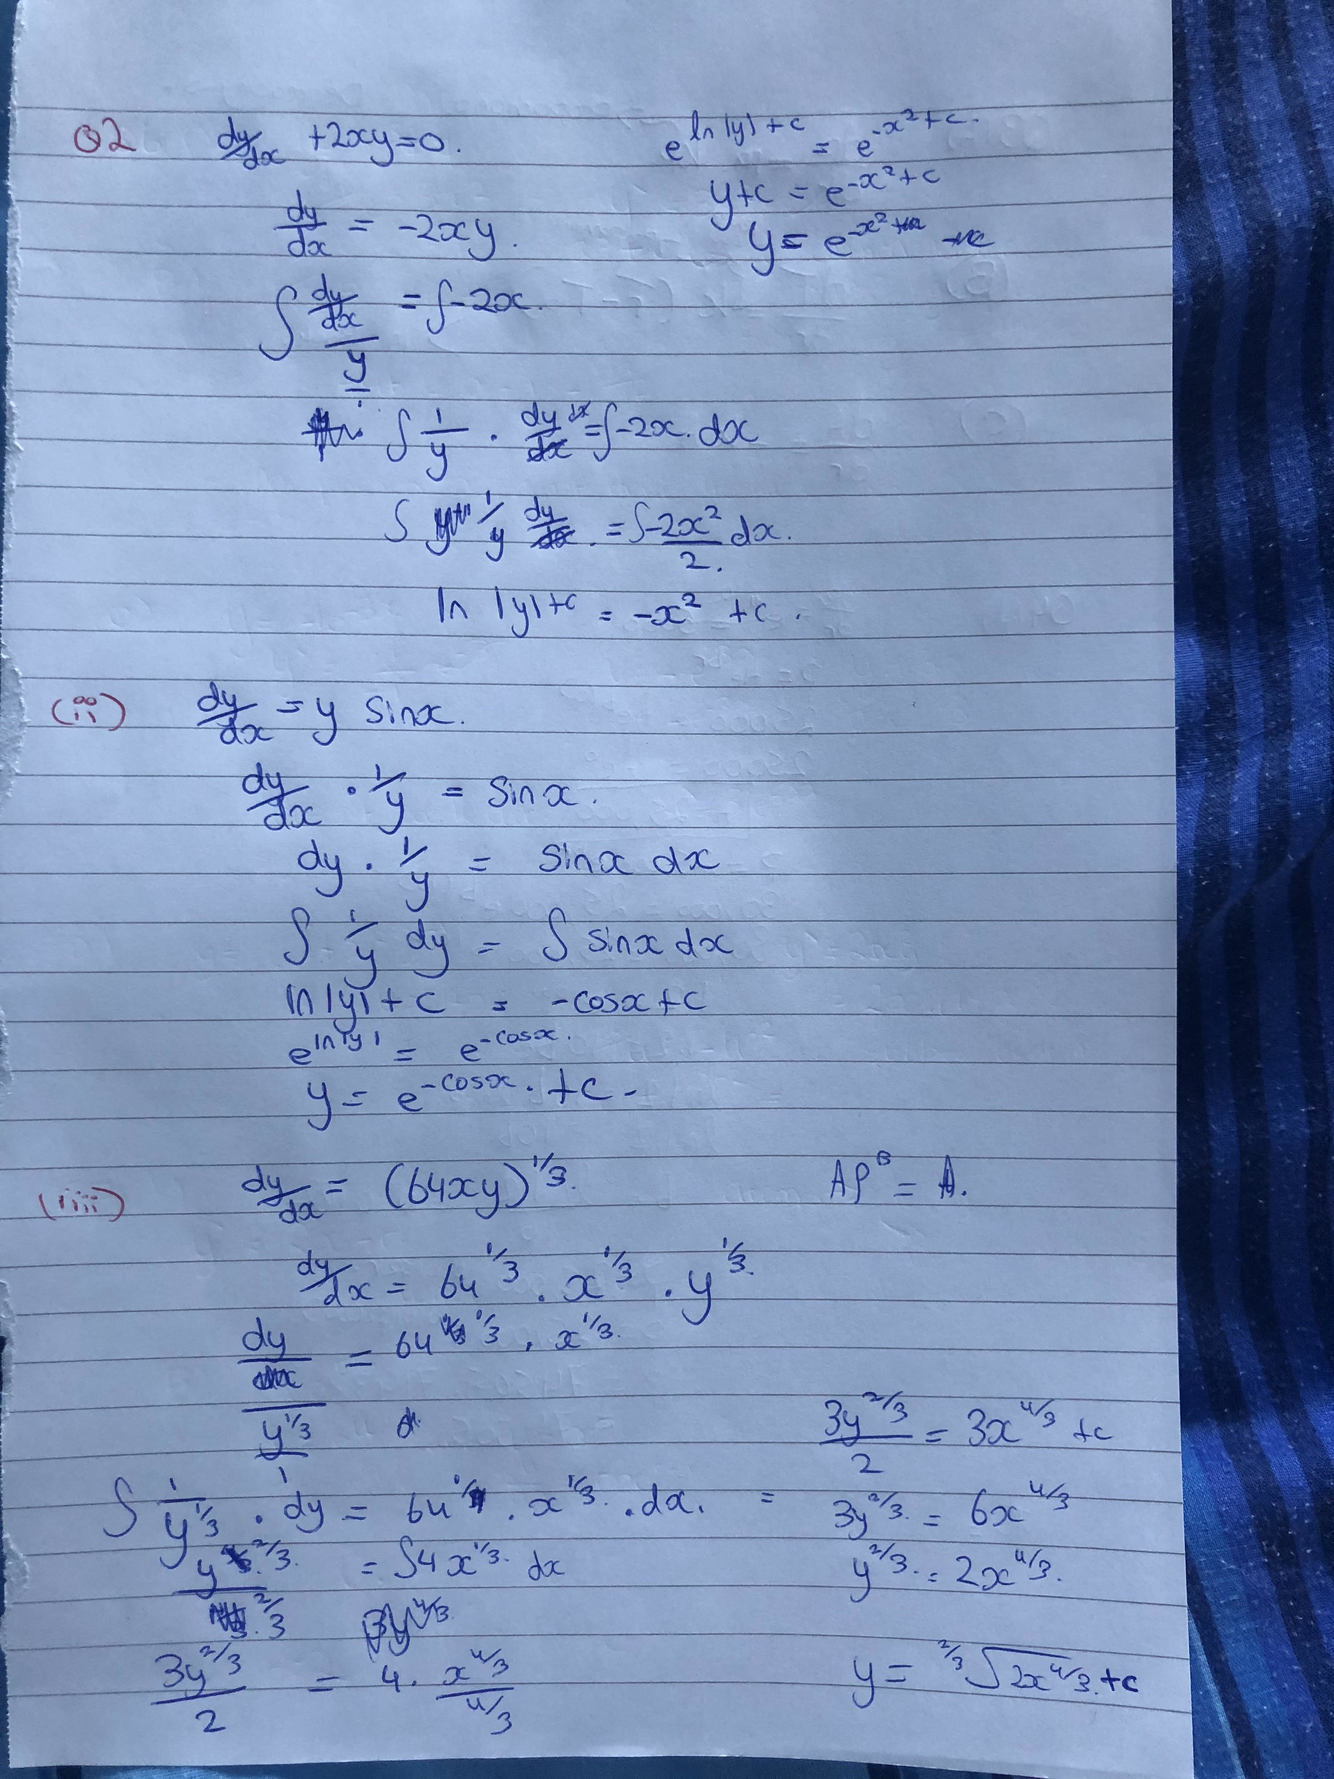 Q2 dy/dx + 2xy = 0.
dy/dx = -2xy.
∫ (dy/dx)/y = ∫-2x.
∫ 1/y . dy = ∫-2x. dx
∫ 1/y dy = ∫ -2x²/2. dx.
ln |y| + c = -x² + c.
e^(ln|y| + c) = e^(-x² + c).
y + c = e^(-x² + c)
y = e^(-x²)
(ii) dy/dx = y sinx.
dy/dx . 1/y = sinx.
dy . 1/y = sinx dx
∫ 1/y dy = ∫ sinx dx
ln|y| + c = -cosx + c
e^(ln|y|) = e^(-cosx).
y = e^(-cosx). + c.
(iii) dy/dx = (64xy)^(1/3).
dy/dx = 64^(1/3) . x^(1/3) . y^(1/3).
dy / y^(1/3) = 64^(1/3) . x^(1/3).
∫ 1/y^(1/3) . dy = 64 . x^(1/3) . dx. =
y^(2/3) / (2/3) = ∫4x^(1/3). dx
3y^(2/3)/2 = 4 . x^(4/3)/(4/3)
= A.
3y^(2/3)/2 = 3x^(4/3) + c
3y^(2/3). = 6x^(4/3)
y^(2/3). = 2x^(4/3).
y = ^(2/3)√(2x^(4/3). + c)